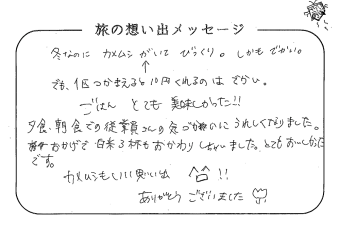 旅の想い出メッセージ
冬なのに カメムシがいて びっくり。しかもでかい。
でも、1匹つかまえると10円くれるのは でかい。
ごはん とても 美味しかった!!
夕食、朝食での従業員さんの気づかいに うれしくなりました。
おかげで 白米3杯もおかわり しちゃいました。とてもおいしかった
です。
カメムシもいい思い出 ^□^ !!
ありがとう ございました